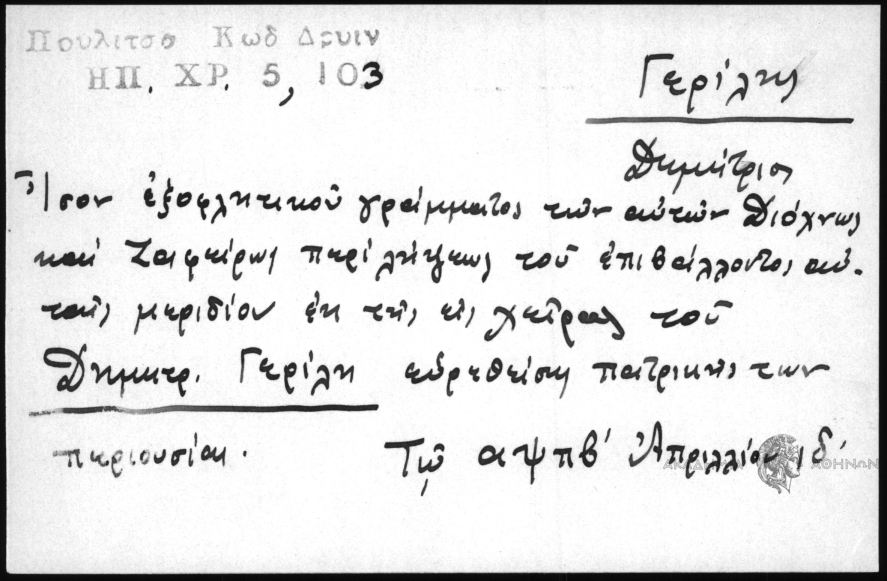 Πουλιτσα Κωδ Δρυιν
ΗΠ. ΧΡ. 5, 103
Γερίλης
Δημήτρις
Ἴσον ἐξοφλητικοῦ γράμματος τῶν αὐτῶν Διόχνως
καί Ζαφείρως περιλήψεως τοῦ ἐπιβάλλοντος αὐ-
ταῖς μεριδίον ἐκ τῆς εἰς χεῖρας τοῦ
Δημητρ. Γερίλη εὑρεθείση πατρικῆς των
περιουσίας. Τῷ αψπβ' Ἀπριλλίου ιδ'
ΑΘΗΝΩΝ